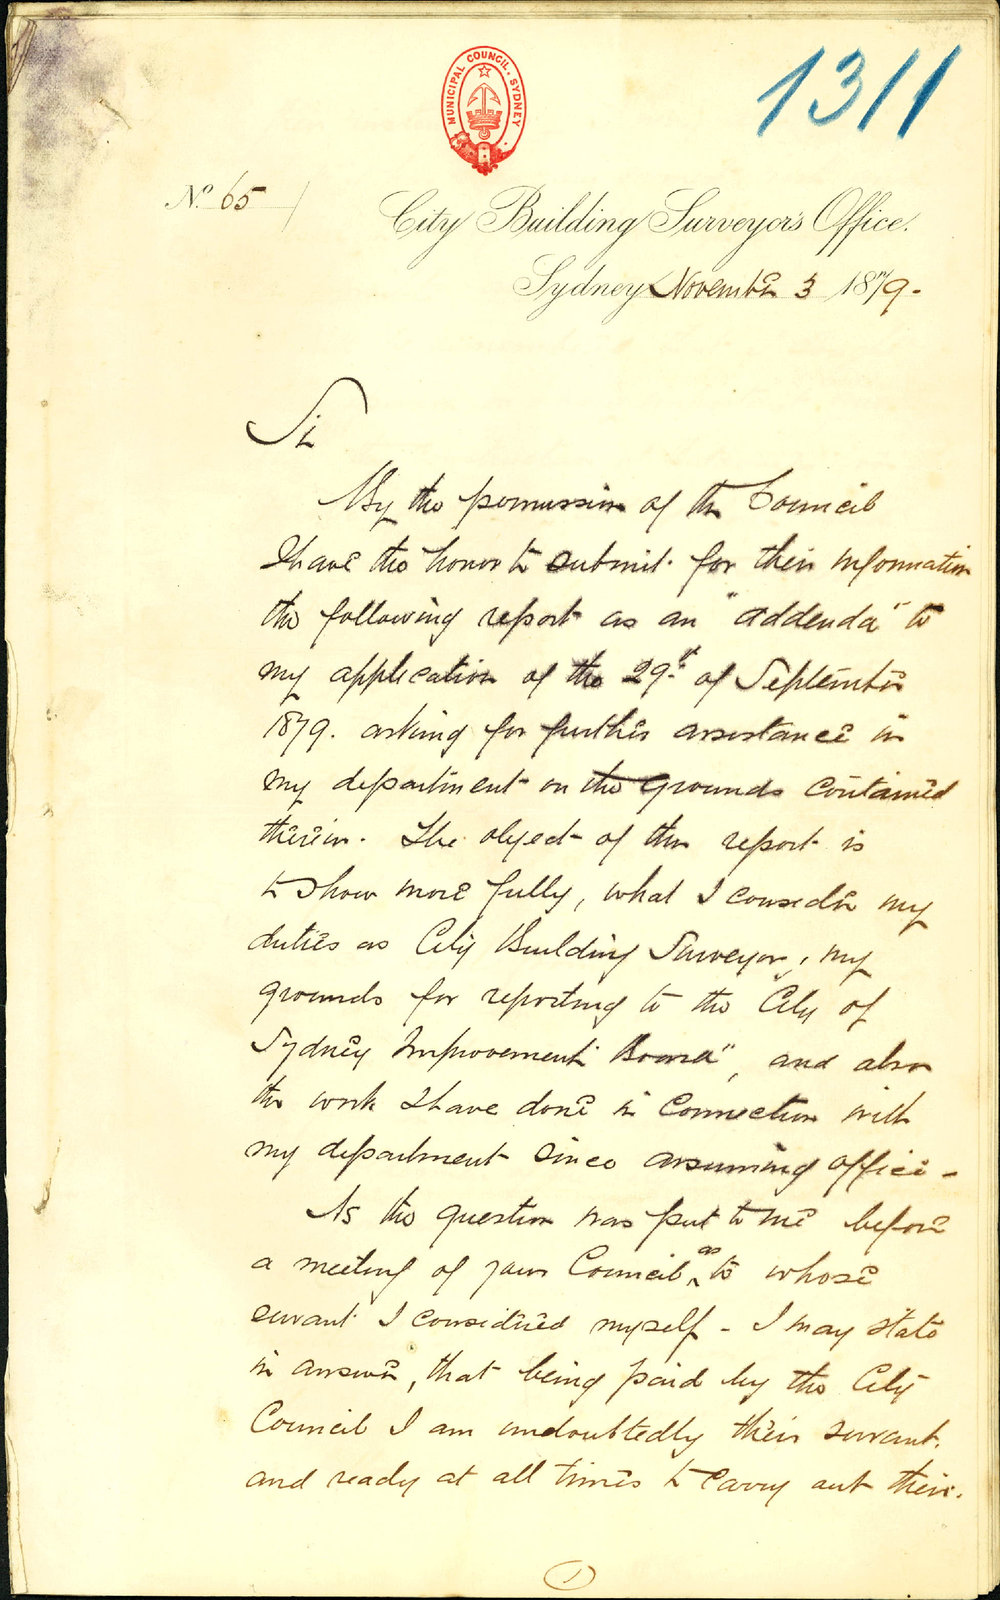 1311
MUNICIPAL COUNCIL. SYDNEY
No. 65
City Building Surveyor's Office.
Sydney November 3 1879.
Sir
By the permission of the Council
I have the honor to submit for their information
the following report as an "addenda" to
my application of the 29th of September
1879. asking for further assistance in
my department on the grounds contained
therein. The object of this report is
to show more fully, what I consider my
duties as City Building Surveyor, my
grounds for reporting to the "City of
Sydney Improvement Board", and also
the work I have done in connection with
my department since assuming office -
As the question was put to me before
a meeting of your Council, as to whose
servant I considered myself - I may state
in answer, that being paid by the City
Council I am undoubtedly their servant.
and ready at all times to carry out their.
1